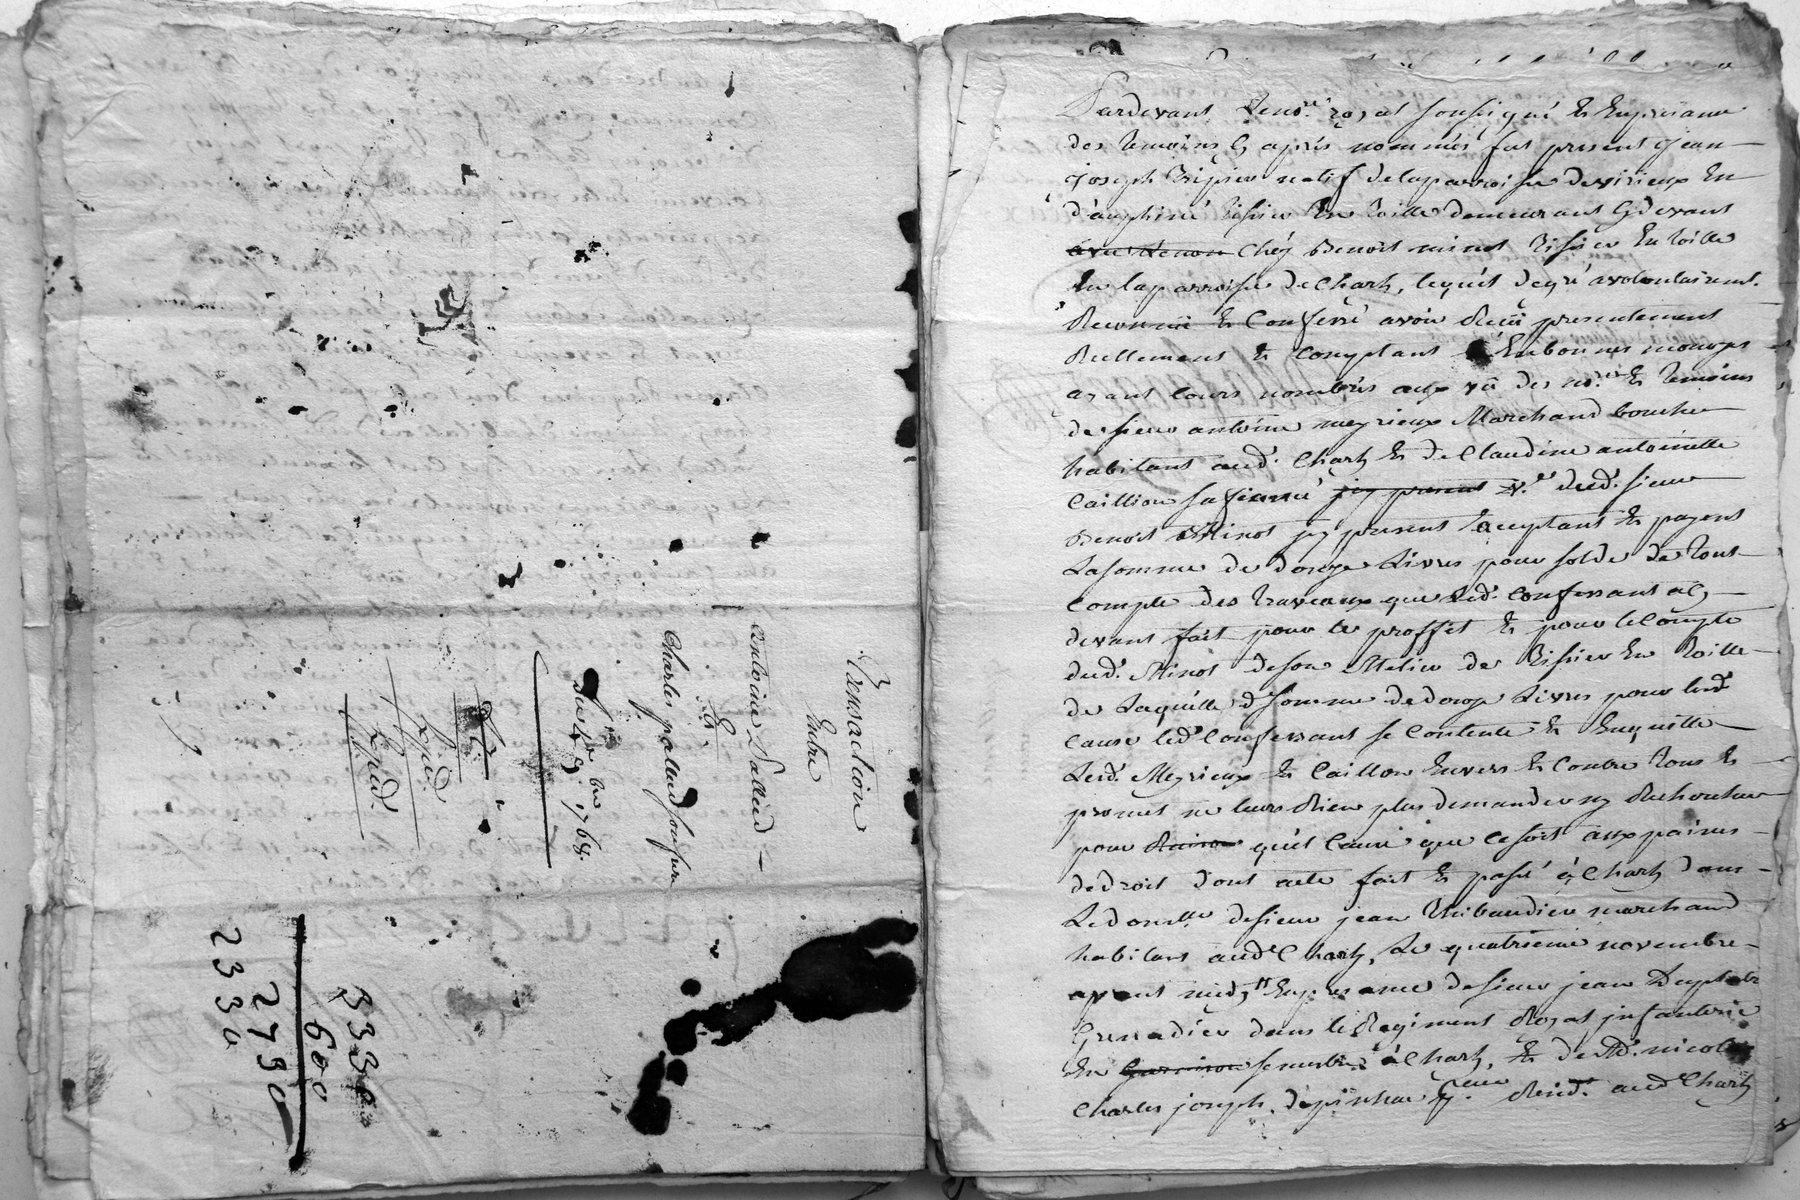 Transaction
Entre
antoine
Et
Charles palud
du 1768.
Expéd.
Expéd.
3330
600
2730
2330
Pardevant Reno.re royal soussigné Et Enpresance
des temoins Cy après nommés fut present jean
joseph natif delaparroisse devirieux En
dauphiné tissier En toille demeurant Cydevant
Chéz Benoit minot tissier En toille
En laparroisse de Charly, lequél degré avolontairem.t
Reconnu Et Confessé avoir Recû presentement
Réellement Et Comptant Enbonnes monoyes
ayant Cours nombrés aux vû des no.res Et temoins
desieur antoine meyrieux Marchand boucher
habitant aud. Charly Et de Claudine antoinette
Caillion safemme jcy present dud. sieur
Benoit Minot jcy present acceptant Et payant
Lasomme de douze Livres pour solde de tout
Compte des travaux que Led. Confessant acy
devant fait pour le proffit Et pour leCompte
dud. Minot deson Metier de tissier En toille
de Laquélle d. somme dedouze Livres pour lad.
Cause led. Confessant se Contente Et Enquitte
Lesd. Meyrieux Et Caillion Envers Et Contre tous Et
promet ne leurs Rien plus demander ny Rechercher
pour Raison quél Cause que Cesoit aux paines
dedroit dont acte fait Et passé à Charly dans
Ledomille desieur jean thibaudier marchand
habitant aud. Charly, Le quatrieme novembre
avant midy Enpresance desieur jean
Grenadier dans le Regiment Royal jnfanterie
En Garnison semestre à Charly, Et de Sr. nicolas
Charles joseph Resid. aud. Charly